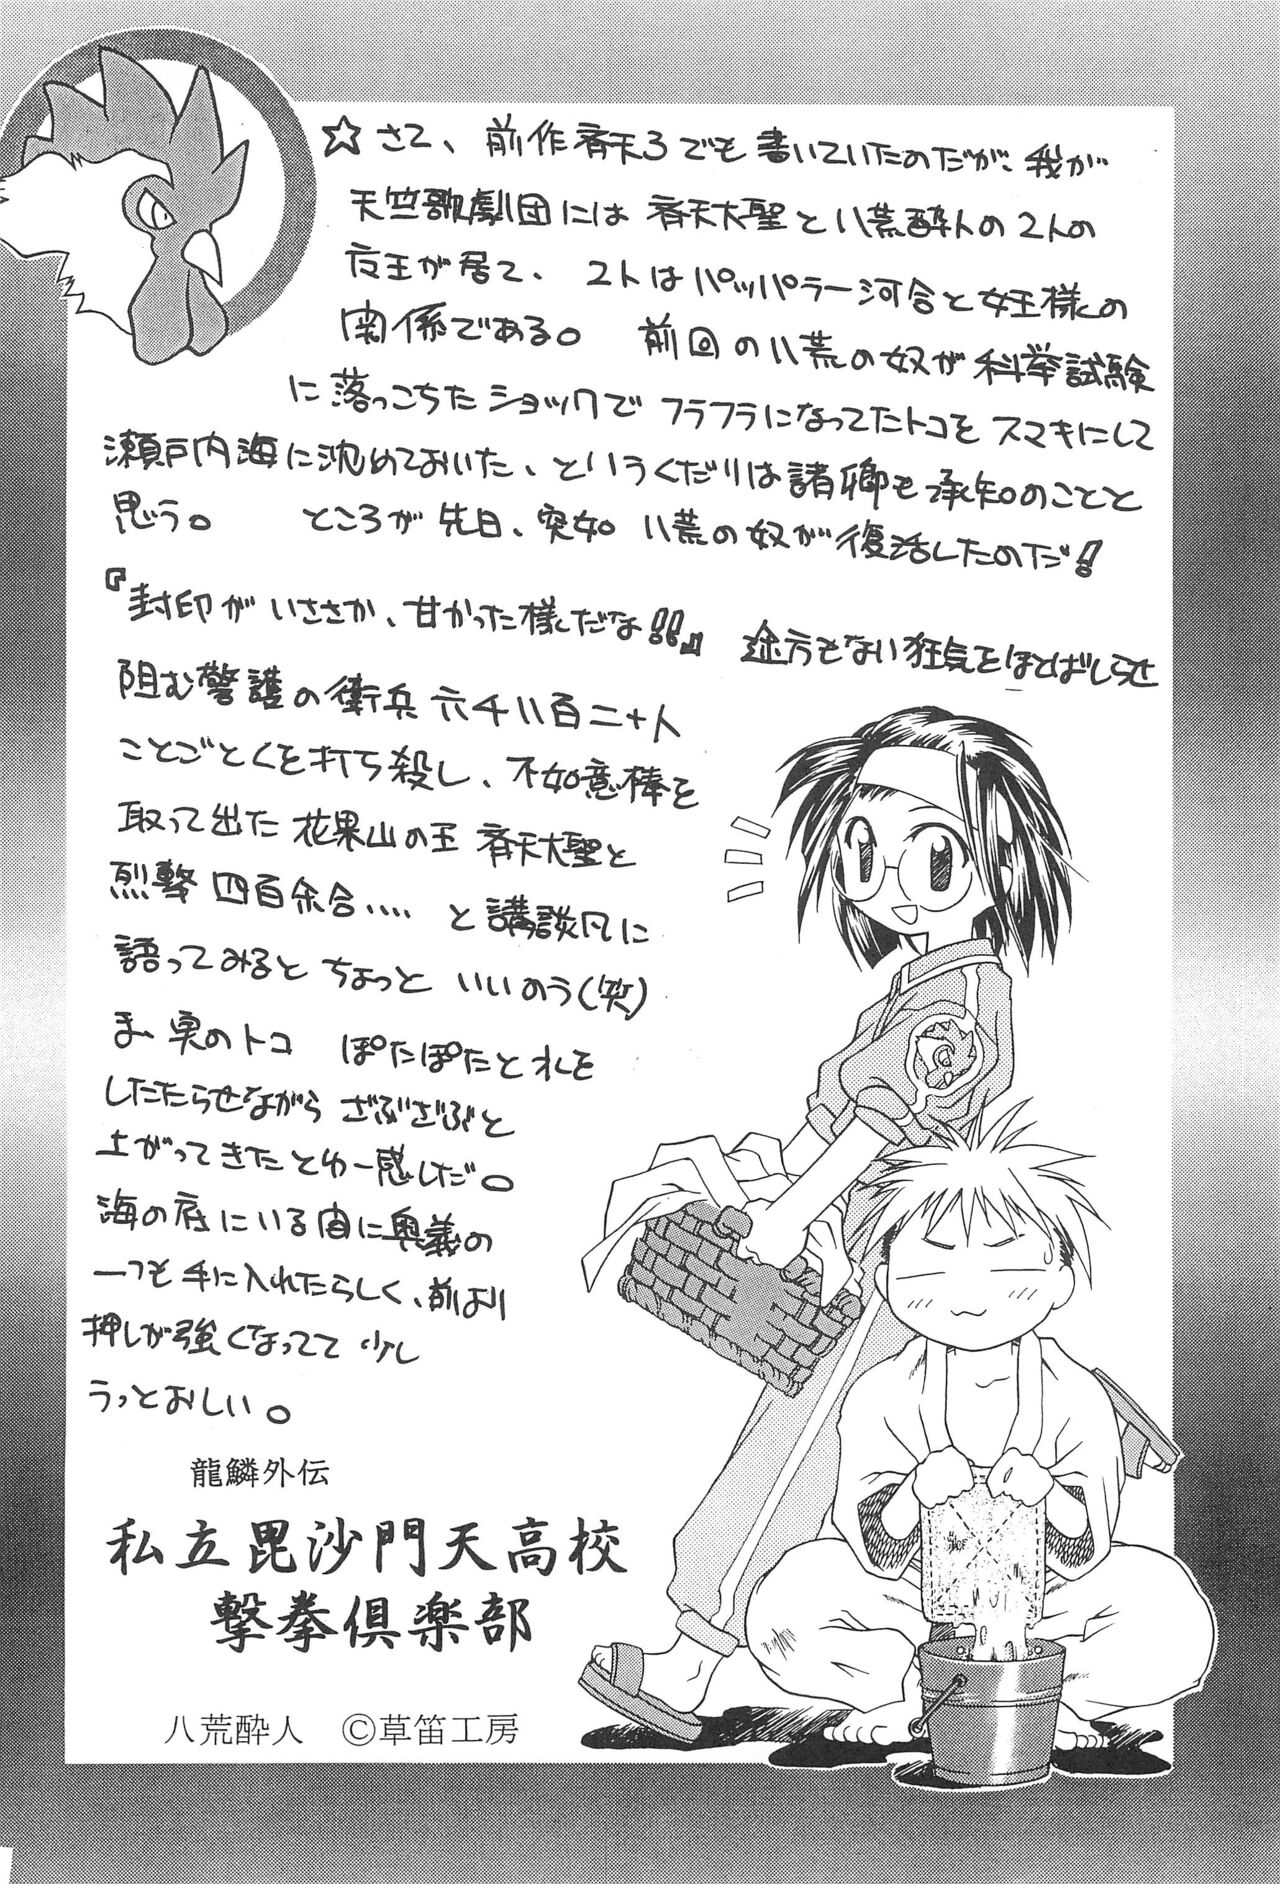 ☆さて、前作斉天3でも書いていたのだが、我が
天竺歌劇団には斉天大聖と八荒酔人の2人の
女王が居て、2人はパッパラー河合と女王様の
関係である。 前回の八荒の奴が科挙試験
に落っこちたショックでフラフラになってたトコをスマキにして
瀬戸内海に沈めておいた、というくだりは諸卿も承知のことと
思う。 ところが先日、突如八荒の奴が復活したのだ!
『封印がいささか、甘かった様だな!!』 途方もない狂気をほとばしらせ
阻む警護の衛兵六千八百二十人
ことごとくを打ち殺し、不如意棒を
取って出た花果山の王斉天大聖と
烈撃四百余合‥‥と講談風に
語ってみるとちょっといいのう(笑)
ま、実のトコ ぽたぽたと水を
したたらせながらざぶざぶと
上がってきたとゆー感じだ。
海の底にいる間に奥義の
一つも手に入れたらしく、前より
押しが強くなってて少し
うっとおしい。
龍鱗外伝
私立毘沙門天高校
撃拳倶楽部
八荒酔人 ©草笛工房